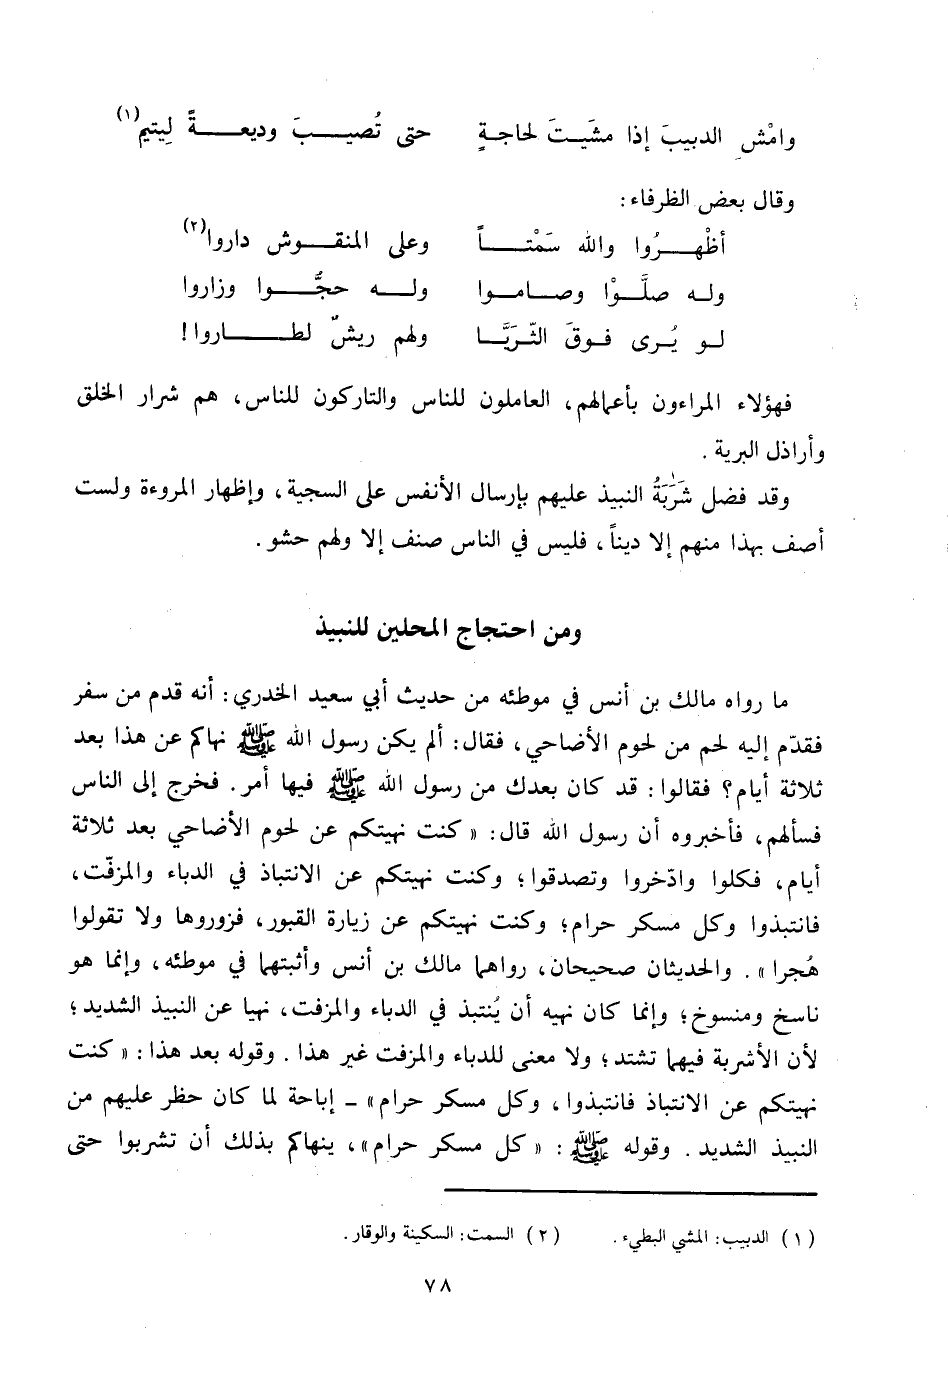 وامْشِ الدبيبَ إذا مشَيتَ لحاجةٍ حتى تُصيبَ وديعةً لِيتيم(١)
وقال بعض الظرفاء :
أظْهرُوا والله سَمْتاً وعلى المنقوش داروا(٢)
وله صلَّوْا وصاموا وله حجُّوا وزاروا
لو يُرى فوقَ الثّريَّا ولهم ريشٌ لطاروا!
فهؤلاء المراءون بأعمالهم، العاملون للناس والتاركون للناس، هم شرار الخلق
وأراذل البرية .
وقد فضل شَرَبَةُ النبيذ عليهم بإرسال الأنفس على السجية، وإظهار المروءة ولست
أصف بهذا منهم إلا ديناً، فليس في الناس صنف إلا ولهم حشو.
ومن احتجاج المحلين للنبيذ
ما رواه مالك بن أنس في موطئه من حديث أبي سعيد الخدري: أنه قدم من سفر
فقدّم إليه لحم من لحوم الأضاحي، فقال: ألم يكن رسول الله ﷺ نهاكم عن هذا بعد
ثلاثة أيام؟ فقالوا: قد كان بعدك من رسول الله ﷺ فيها أمر. فخرج إلى الناس
فسألهم، فأخبروه أن رسول الله قال: « كنت نهيتكم عن لحوم الأضاحي بعد ثلاثة
أيام، فكلوا وادّخروا وتصدقوا؛ وكنت نهيتكم عن الانتباذ في الدباء والمزفّت،
فانتبذوا وكل مسكر حرام؛ وكنت نهيتكم عن زيارة القبور، فزوروها ولا تقولوا
هُجرا ». والحديثان صحيحان، رواهما مالك بن أنس وأثبتهما في موطئه، وإنما هو
ناسخ ومنسوخ؛ وإنما كان نهيه أن يُنتبذ في الدباء والمزفت، نهيا عن النبيذ الشديد؛
لأن الأشربة فيهما تشتد؛ ولا معنى للدباء والمزفت غير هذا. وقوله بعد هذا: « كنت
نهيتكم عن الانتباذ فانتبذوا، وكل مسكر حرام» ـ إباحة لما كان حظر عليهم من
النبيذ الشديد. وقوله ﷺ : « كل مسكر حرام»، ينهاكم بذلك أن تشربوا حتى
(١) الدبيب: المشي البطيء. (٢) السمت: السكينة والوقار.
٧٨